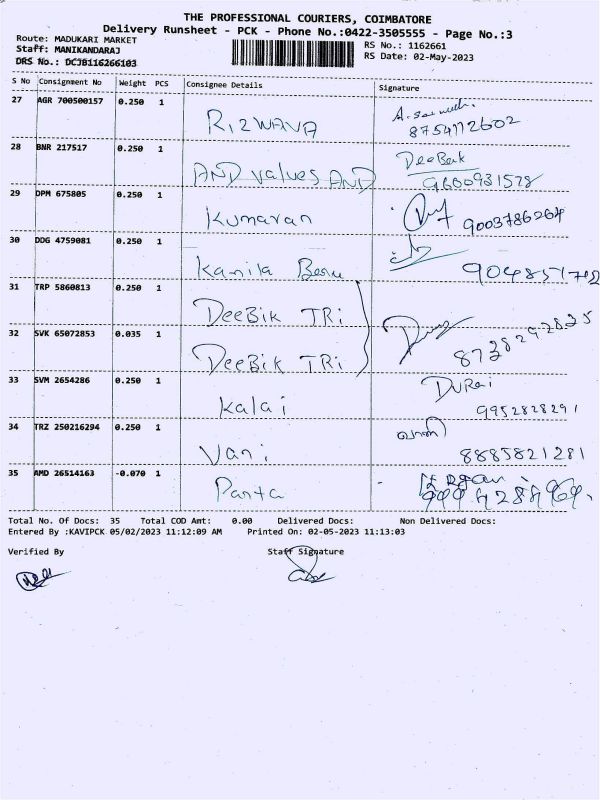 THE PROFESSIONAL COURIERS, COIMBATORE
Delivery Runsheet - PCK - Phone No.:0422-3505555 - Page No.:3
Route: MADUKARI MARKET
Staff: MANIKANDARAJ
DRS No.: DCJB116266103
RS No.: 1162661
RS Date: 02-May-2023
S No Consignment No Weight PCS Consignee Details Signature
27 AGR 700500157 0.250 1 RIZWAVA
8754112602
28 BNR 217517 0.250 1 AND values AND DeeBek
9600931578
29 DPM 675805 0.250 1 Kumaran 9003786264
30 DDG 4759081 0.250 1 Kamila 9048551702
31 TRP 5860813 0.250 1 DeeBik TRi
32 SVK 65072853 0.035 1 DeeBik TRi
33 SVM 2654286 0.250 1 Kalai DURai
9952828291
34 TRZ 250216294 0.250 1 Vani வாணி
8885821281
35 AMD 26514163 -0.070 1 Panta
Total No. Of Docs: 35 Total COD Amt: 0.00 Delivered Docs: Non Delivered Docs:
Entered By :KAVIPCK 05/02/2023 11:12:09 AM Printed On: 02-05-2023 11:13:03
Verified By Staff Signature